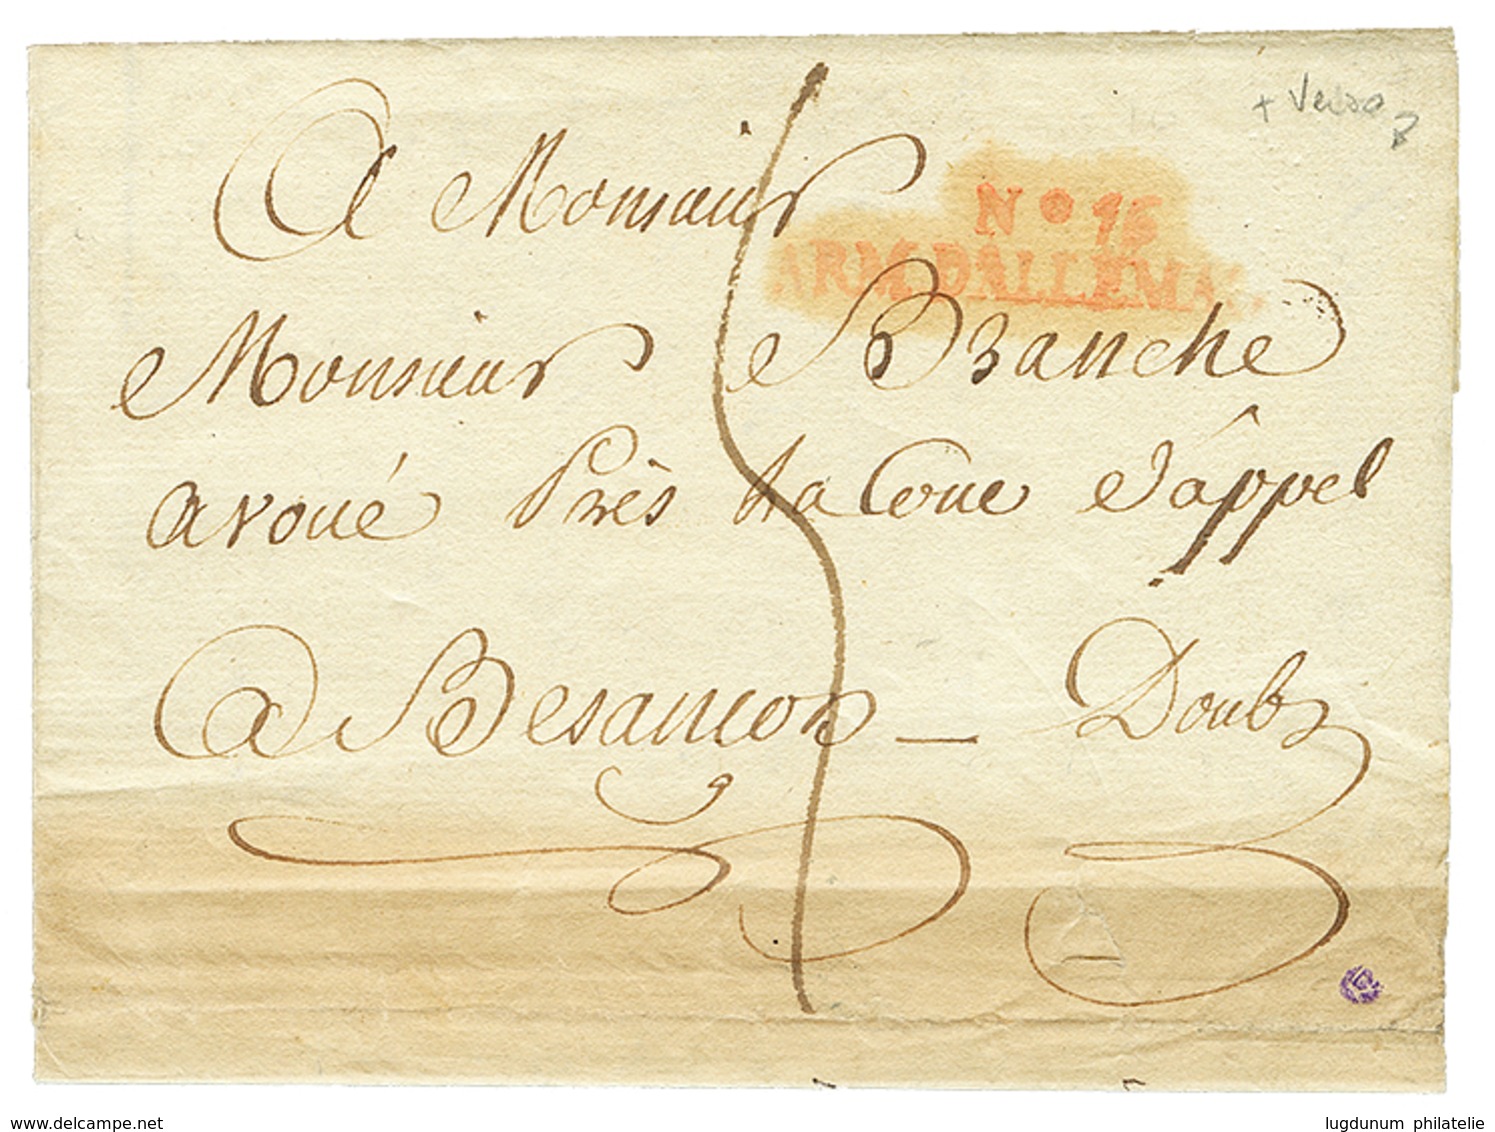 + Verso
A Monsieur
No 16
ARM. D'ALLEMAG
Monsieur Branche
avoué Près La Cour d'âppel
a Besançon — Doubs
© delcampe.net
lugdunum philatelie